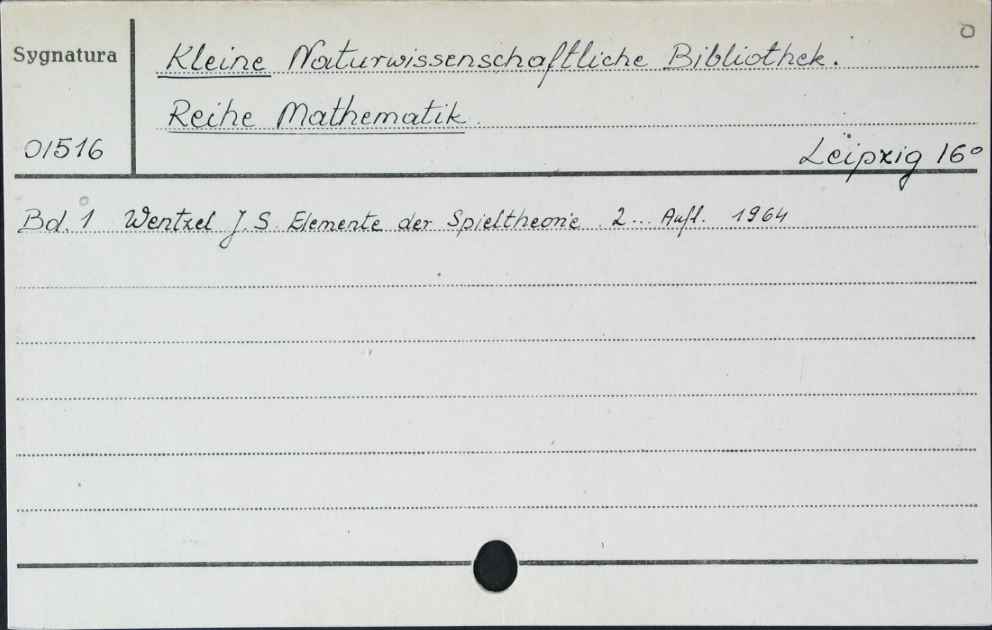 Sygnatura
Kleine Naturwissenschaftliche Bibliothek.
Reihe Mathematik
01516
Leipzig 16°
Bd. 1 Wentzel J. S. Elemente der Spieltheorie. 2... Aufl. 1964